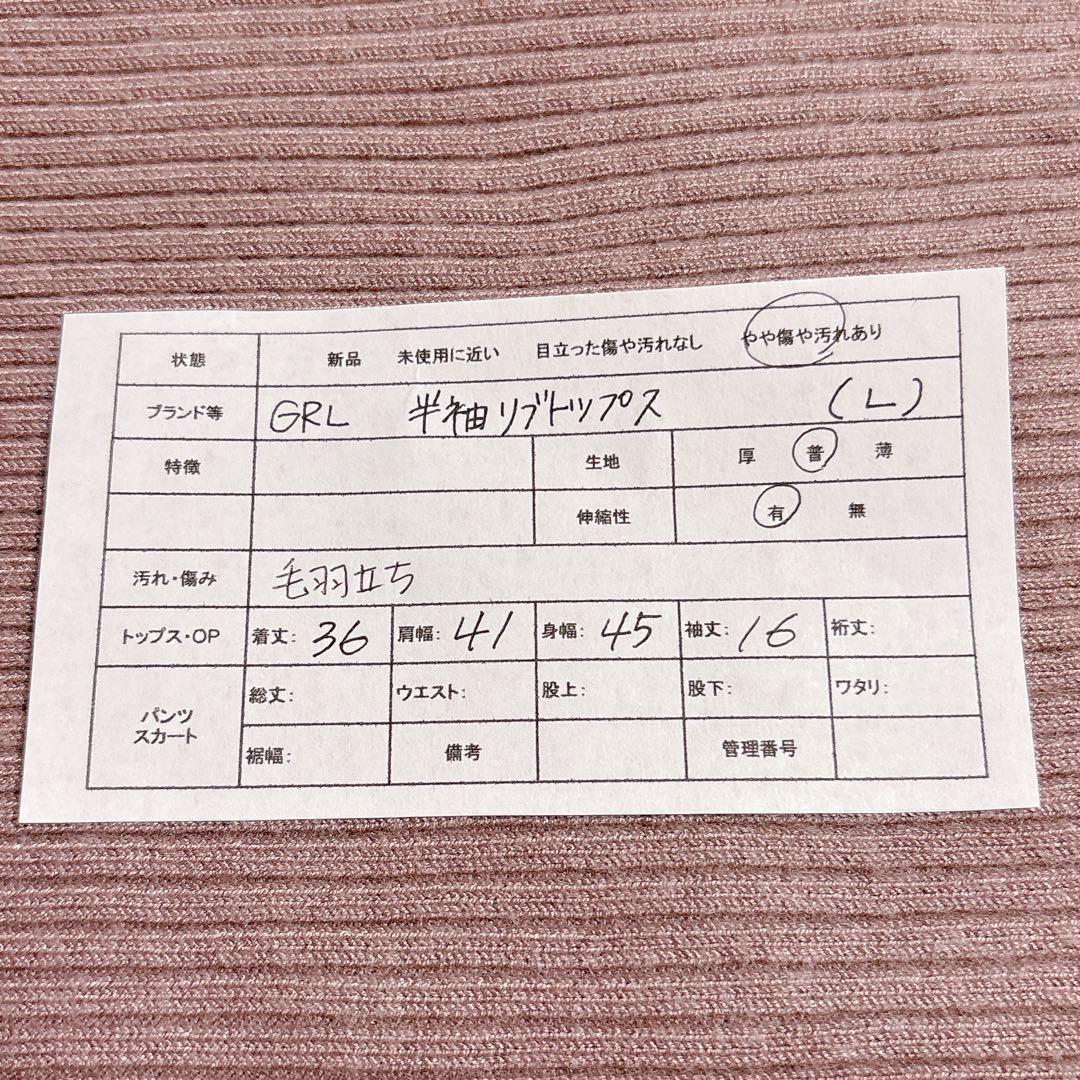 状態 新品 未使用に近い 目立った傷や汚れなし やや傷や汚れあり
ブランド等 GRL 半袖リブトップス (L)
特徴 生地 厚 普 薄
伸縮性 有 無
汚れ・傷み 毛羽立ち
トップス・OP 着丈: 36 肩幅: 41 身幅: 45 袖丈: 16 裄丈:
パンツ 総丈: ウエスト: 股上: 股下: ワタリ:
スカート
裾幅: 備考 管理番号